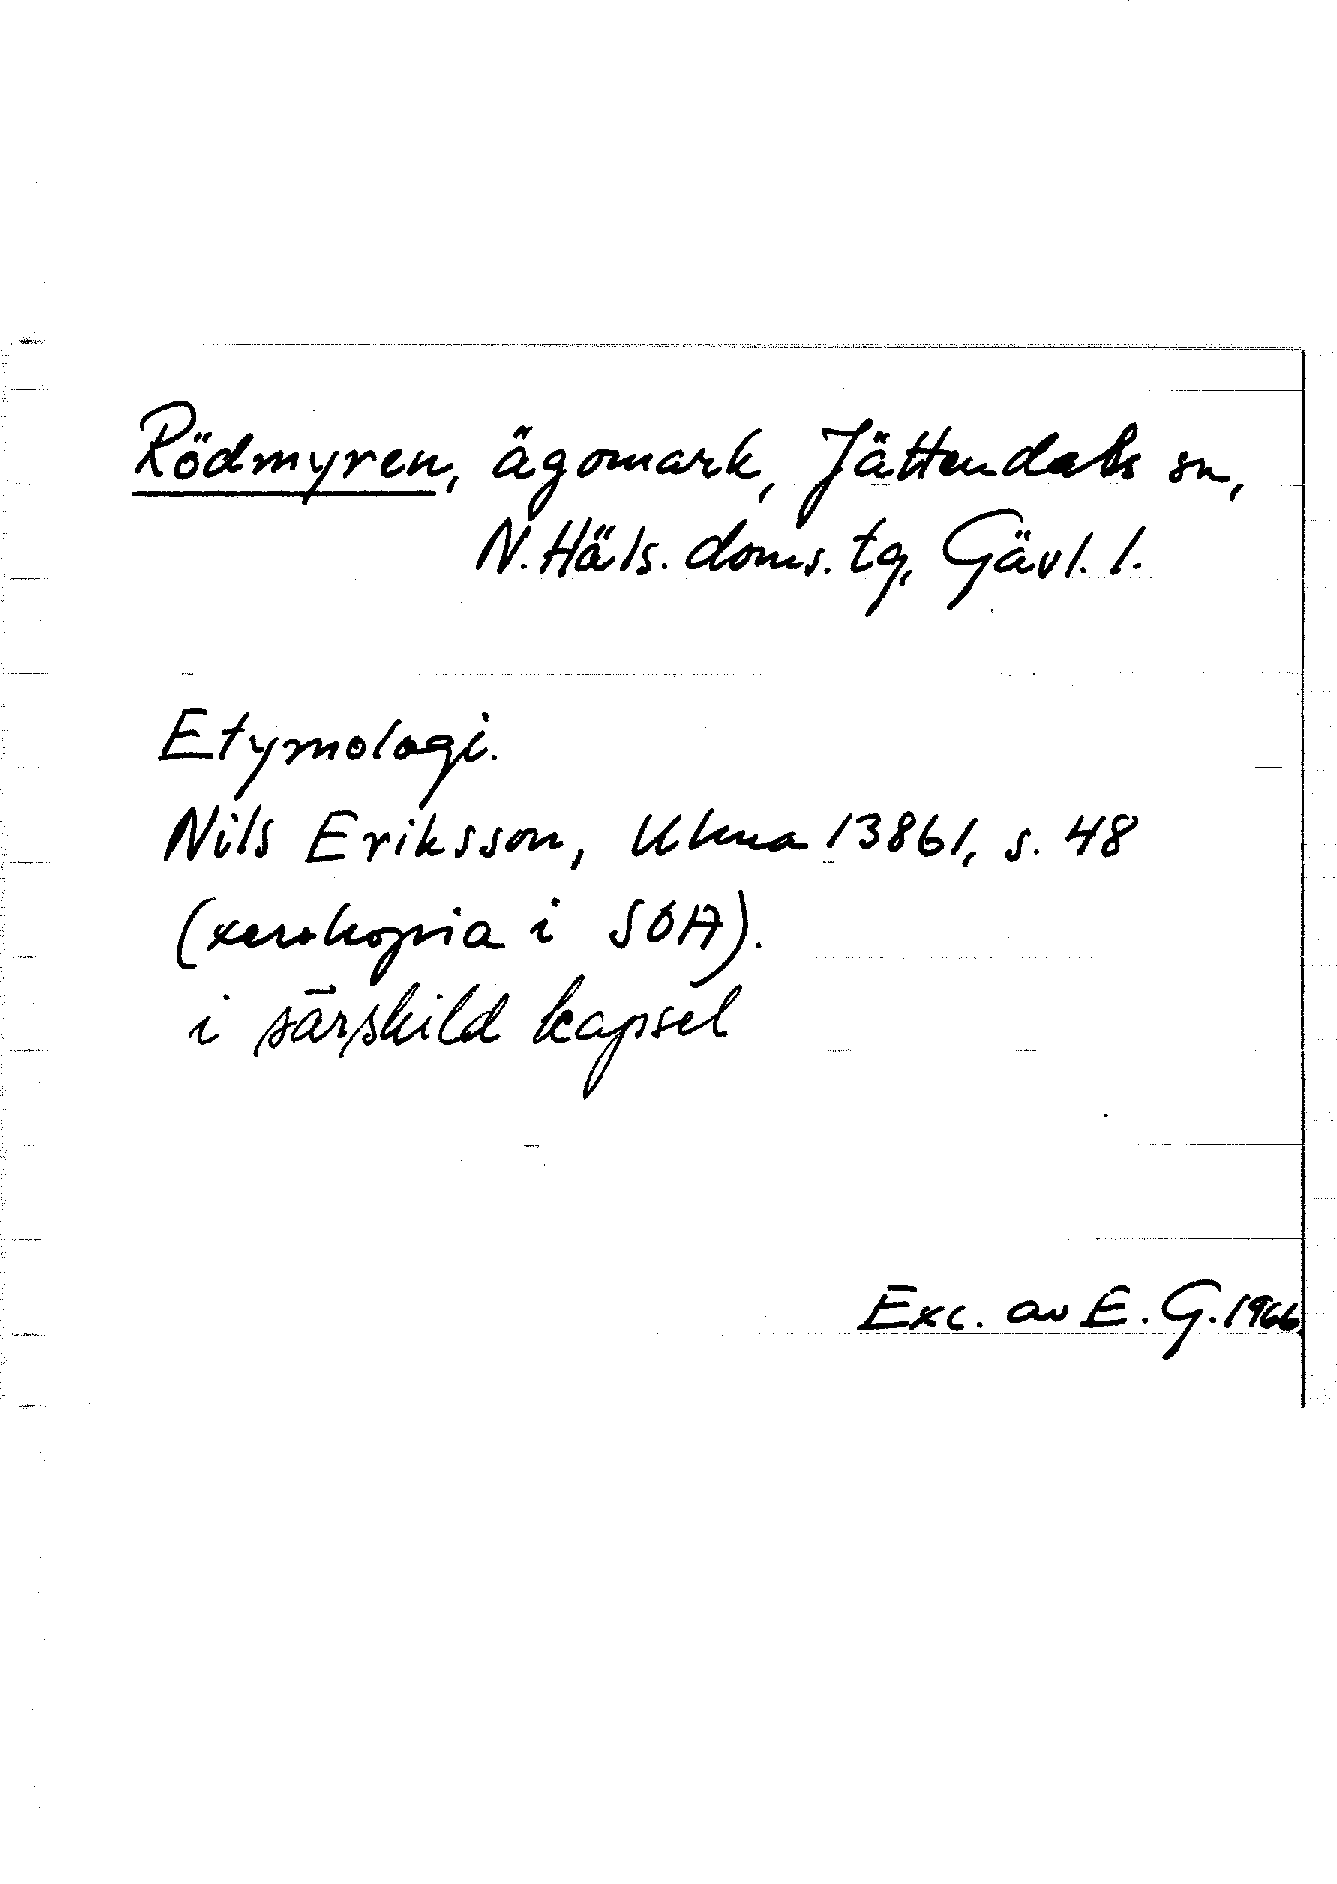 Rödmyren, ägomark, Jättendals sn,
N. Häls. doms. tg, Gävl. l.
Etymologi.
Nils Eriksson, Ukna 13861, s. 48
(xerokopia i SOA).
i särskild kapsel
Exc. av E. G. 1966